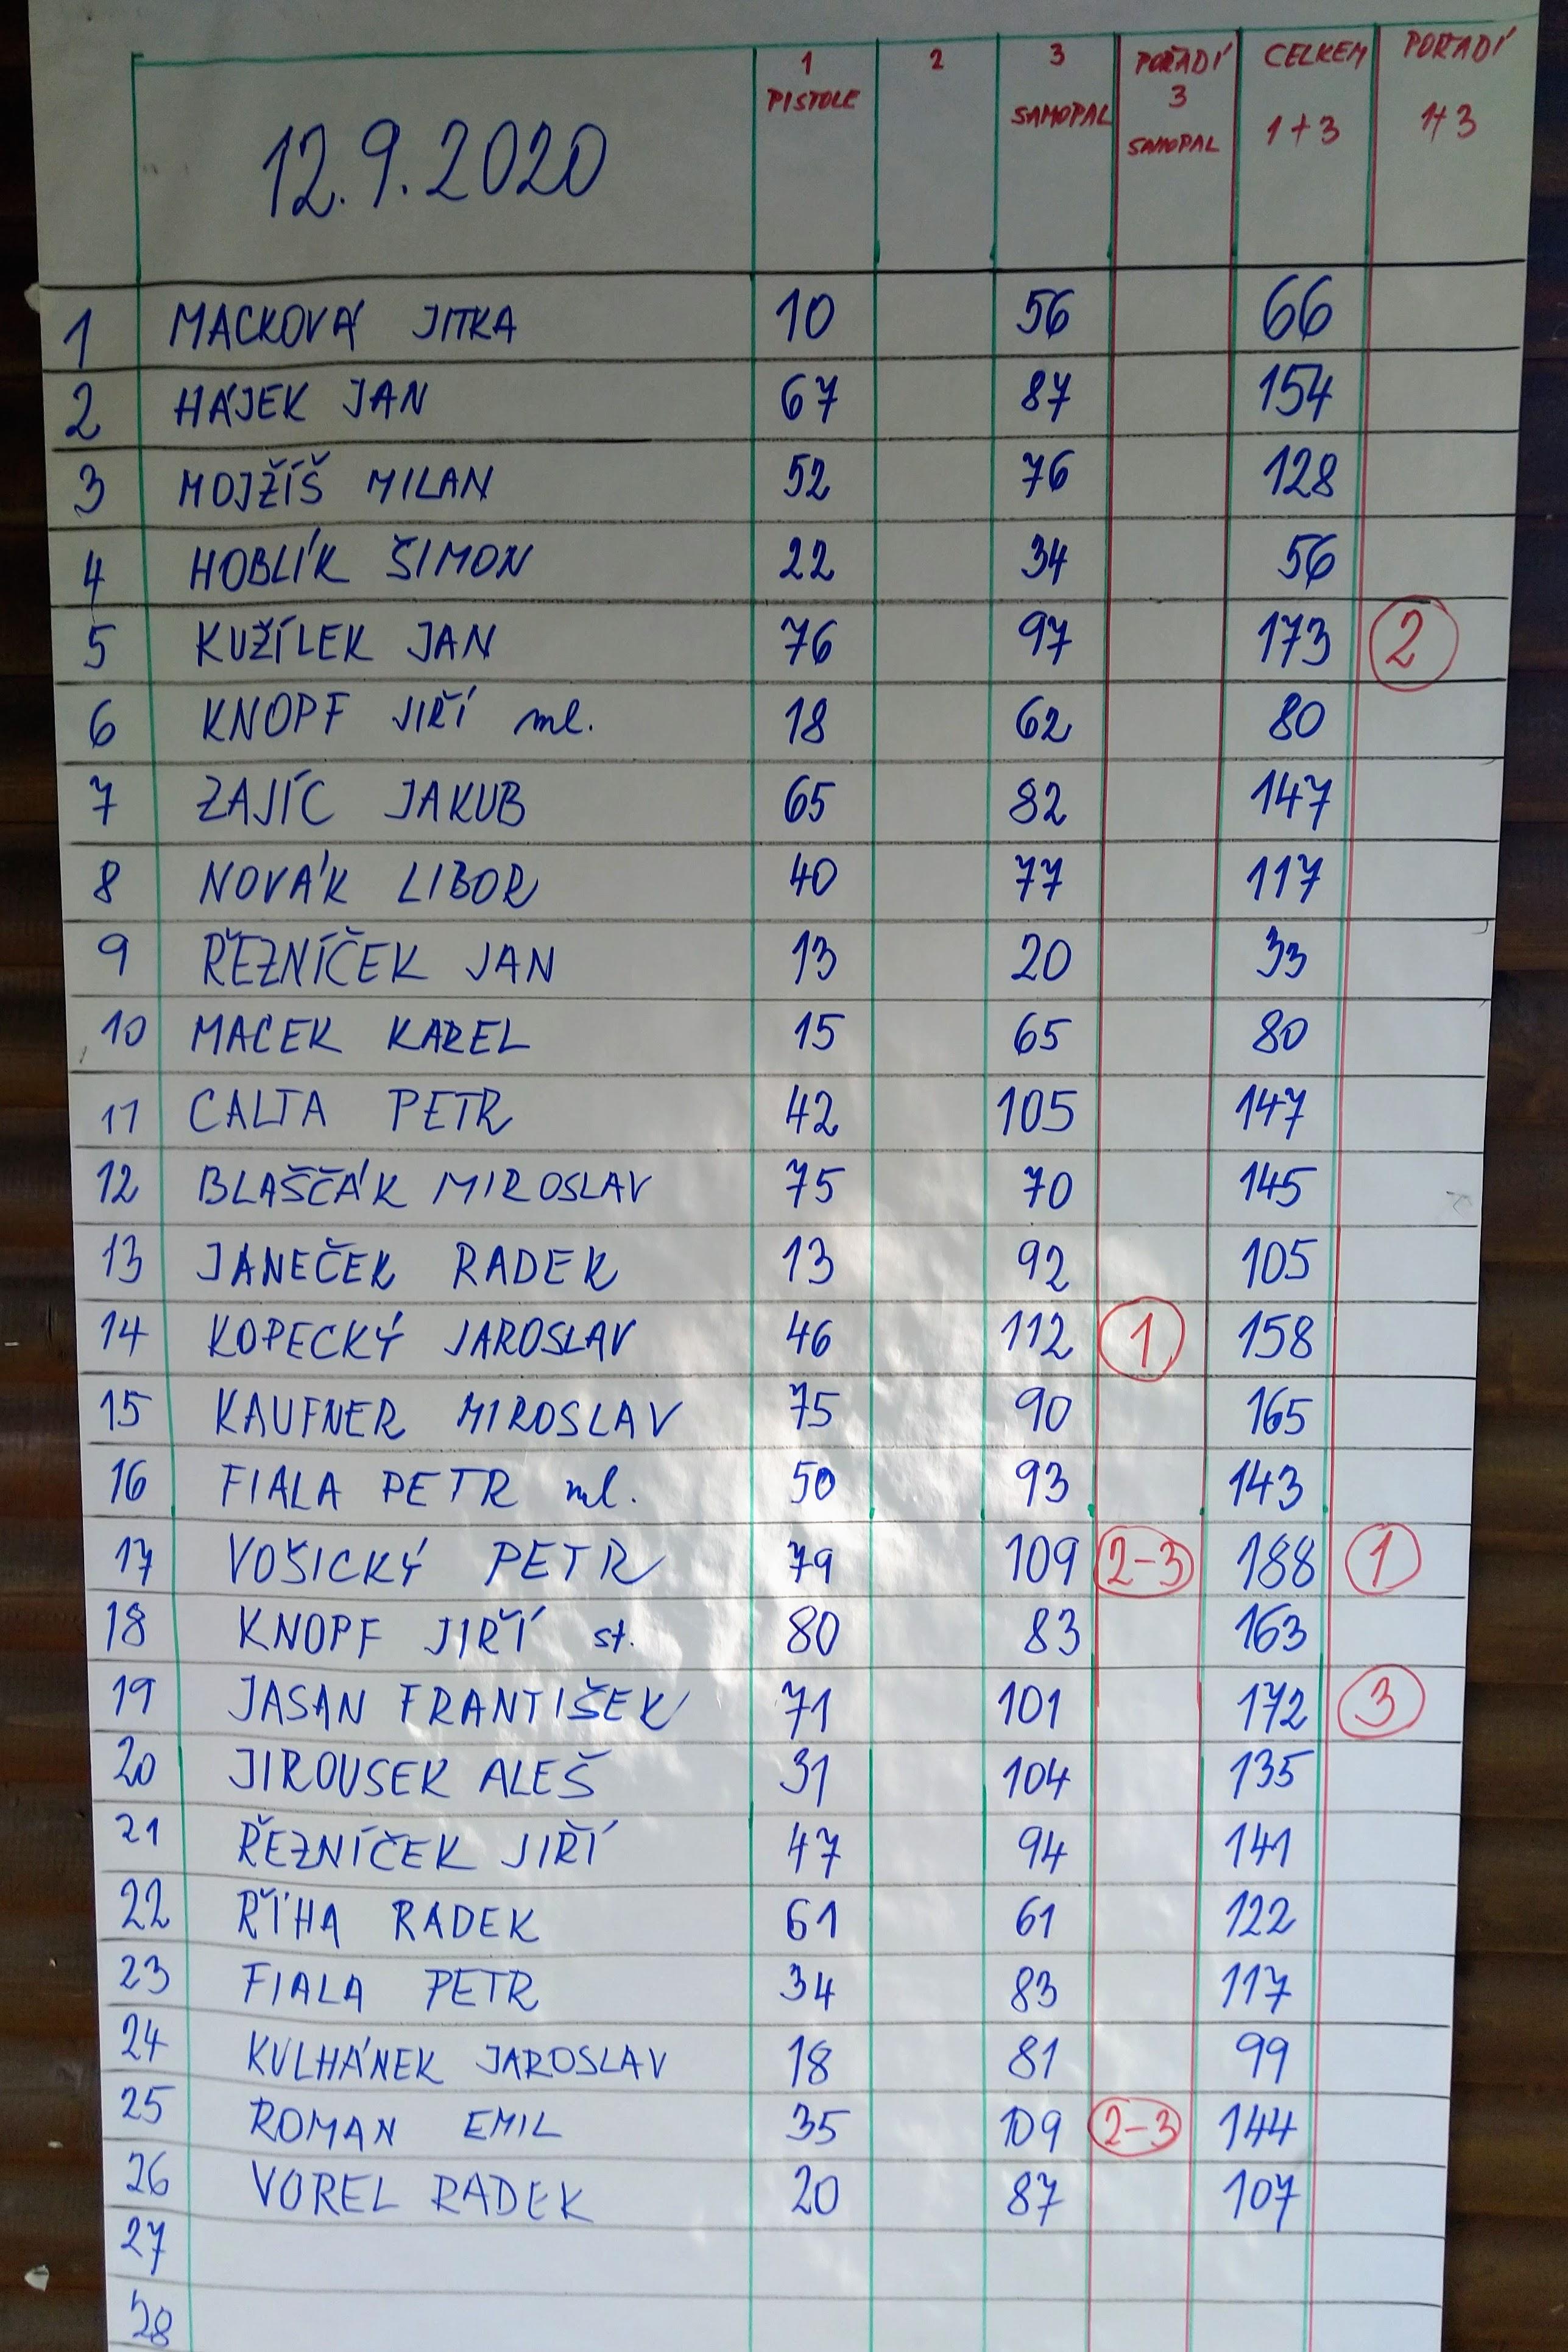 12.9.2020 1 PISTOLE 2 3 SAMOPAL POŘADÍ 3 SAMOPAL CELKEM 1+3 POŘADÍ 1+3
1 MACKOVÁ JITKA 10 56 66
2 HÁJEK JAN 67 87 154
3 MOJŽÍŠ MILAN 52 76 128
4 HOBLÍK ŠIMON 22 34 56
5 KUŽÍLEK JAN 76 97 173 2
6 KNOPF JIŘÍ ml. 18 62 80
7 ZAJÍC JAKUB 65 82 147
8 NOVÁK LIBOR 40 77 117
9 ŘEZNÍČEK JAN 13 20 33
10 MACEK KAREL 15 65 80
11 CALTA PETR 42 105 147
12 BLAŠČÁK MIROSLAV 75 70 145
13 JANEČEK RADEK 13 92 105
14 KOPECKÝ JAROSLAV 46 112 1 158
15 KAUFNER MIROSLAV 75 90 165
16 FIALA PETR ml. 50 93 143
17 VOŠICKÝ PETR 79 109 2-3 188 1
18 KNOPF JIŘÍ st. 80 83 163
19 JASAN FRANTIŠEK 71 101 172 3
20 JIROUSEK ALEŠ 31 104 135
21 ŘEZNÍČEK JIŘÍ 47 94 141
22 ŘÍHA RADEK 61 61 122
23 FIALA PETR 34 83 117
24 KULHÁNEK JAROSLAV 18 81 99
25 ROMAN EMIL 35 109 2-3 144
26 VOREL RADEK 20 87 107
27
28